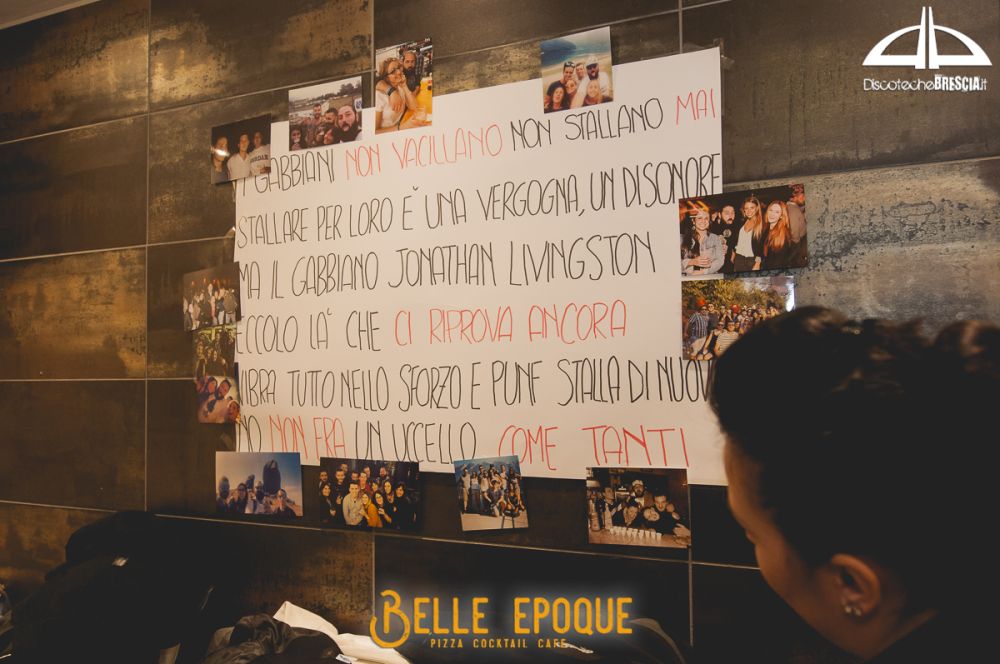 DiscotecheBRESCIA.it
I GABBIANI NON VACILLANO NON STALLANO MAI
STALLARE PER LORO È UNA VERGOGNA, UN DISONORE
MA IL GABBIANO JONATHAN LIVINGSTON
ECCOLO LA' CHE CI RIPROVA ANCORA
VIBRA TUTTO NELLO SFORZO E PUNF STALLA DI NUOVO
NO NON ERA UN UCCELLO COME TANTI
BELLE EPOQUE
PIZZA COCKTAIL CAFE